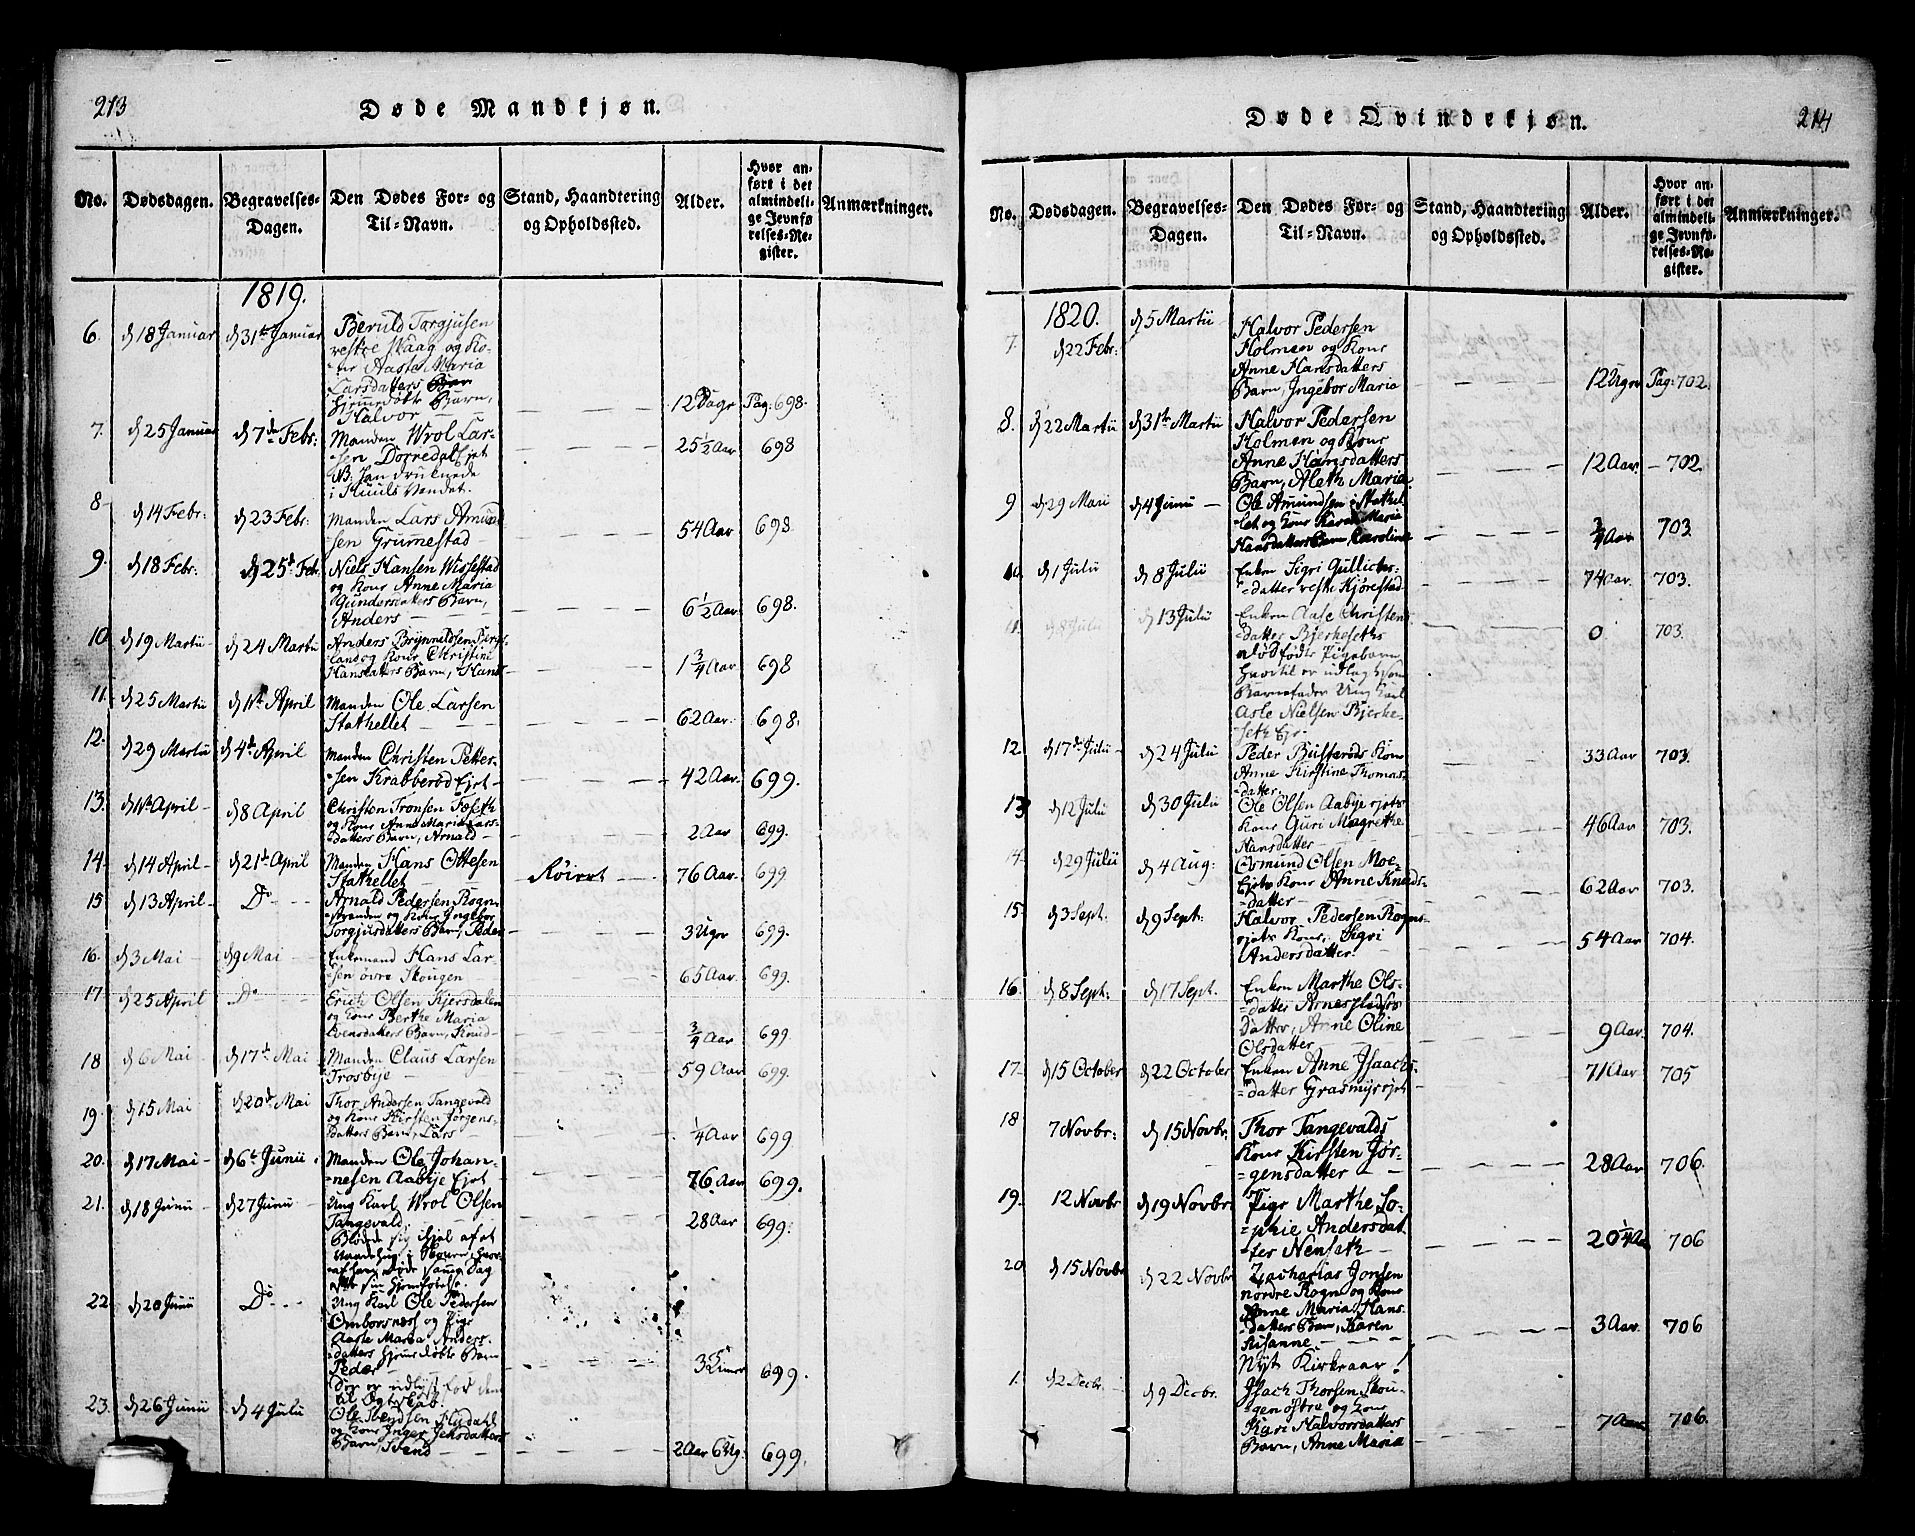 213
Døde Mandkjøn.
No. Dødsdagen. Begravelses-Dagen. Den Dødes For- og Til-Navn. Stand, Haandtering og Opholdssted. Alder. Hvor anført i det almindelige Jevnførelses-Register. Anmærkninger.
1819.
6. d 18 Januar d 31te Januar Beruld Torgjusen
vestre Skaag og Ko-
ne Aaste Maria
Larsdatters
hjemedøbte Barn,
Halvor 12 Dage Pag: 698.
7. d 25 Januar d 7de Febr: Manden Wrol Lar-
sen Dørredal Ejet
NB: han druknede
i Vandet. 25½ Aar 698
8 d 14 Febr: d 23 Febr: Manden Lars Amund-
sen Grummestad 54 Aar 698
9. d 18 Febr: d 25de Feb Niels Hansen Wissestad
og Kone Anne Maria
Gundersdatters Barn,
Anders 6½ Aar 698.
10. d 19 Martii d 24 Martii Anders Brynnildsen Berge-
land og Kone Christine
Hansdatters Barn, Hans 1¾ Aar 698
11. d 25 Martii d 11te April Manden Ole Larsen
Stathellet 62 Aar. 698.
12. d 29 Martii d 4de April Manden Christen Petter-
sen Krabberød Ejet 42 Aar. 699.
13. d 1te April d 8 April Christen Tronsen Fæseth
og Kone Anne Maria Lars-
datters Barn, Arnold 2 Aar 699.
14. d 14 April d 21de April Manden Hans Ottesen
Stathellet 76 Aar. 699
15 d 13 April Do Arnold Pedersen Rogn-
stranden og Kone Ingebor
Torgjusdatters Barn, Peder 3 Uger 699.
16. d 3 Mai d 9 Mai Enkemand Hans Lar-
sen øvre Skougen 65 Aar. 699.
17 d 25 April Do Erich Olsen Kjersdalen
og Kone Berthe Maria
Evensdatters Barn, Knud ¾ Aar 699.
18 d 6 Mai d 17de Mai Manden Claus Larsen
Trosbye 59 Aar 699.
19. d 15 Mai d 20de Mai Thor Andersen Tangevald
og Kone Kirsten Jørgens-
datters Barn, Lars ¼ Aar 699
20. d 17 Mai d 6te Junii Manden Ole Johan-
nesen Aabye Ejet 76 Aar 699.
21. d 18 Junii d 27 Junii Ung Karl Wrol Olsen
Tangevald.
Blødde sig ihjel af et
i Skoven, hvor-
af han døde samme Dag
efter sin Hjemkomst. 28 Aar 699.
22 d 20 Junii Do Ung Karl Ole Pedersen
Omborsnæs og Pige
Aaste Maria Anders-
datters hjemedøbte Barn
Peder 699.
Der er udlyst for dem
til Ægteskab.
23. d 26 Junii d 4 Julii Ole Svendsen Fludahl
og Kone Inger
Barn, Svend 2 Aar 6 Ug: 699.
214
Døde Qvindekjøn.
No. Dødsdagen. Begravelses-Dagen. Den Dødes For- og Til-Navn. Stand, Haandtering og Opholdssted. Alder. Hvor anført i det almindelige Jevnførelses-Register. Anmærkninger.
1820.
7. d 22 Febr: d 5 Martii Halvor Pedersen
Holmen og Kone
Anne Hansdatters
Barn, Ingebor Maria 12 Uger Pag: 702.
8. d 22 Martii d 31te Martii Halvor Pedersen
Holmen og Kone
Anne Hansdatters
Barn, Aleth Maria. 12 Aar 702
9 d 29 Mari d 4 Junii Ole Amundsen i Stathel-
let og Kone Karen Maria
Hansdatters Barn, Caroline ¾ Aar 703
10. d 1 Julii d 8 Julii Enken Sigri Gullichs-
datter vestre Kjørestad 74 Aar. 703.
11. d 8 Julii d 13 Julii Enken Aase Christens-
datter Bjerkeseths
dødfødte Pigebarn
hvortil er udlagt som
Barnefader Ung Karl
Asle Nielsen Bjerke-
seth Ejer 0 703.
12. d 17de Julii d 24 Julii Peder Buserøds Kone
Anne Kirstine Thomas-
datter. 33 Aar 703.
13 d 12 Julii d 30 Julii Ole Olsen Aabye ejets
Kone Guri Magrethe
Hansdatter 46 Aar 703.
14. d 29 Julii d 4 Aug: Osmund Olsen Moe-
Ejets Kone Anne Knuds-
datter 62 Aar 703.
15. d 3 Sept. d 9 Sept: Halvor Pedersen Rogns-
ejets Kone, Sigri
Andersdatter. 54 Aar 704.
16. d 8 Sept: d 17 Sept. Enken Marthe Ols-
datter Arnespladses
Datter, Anne Oline
Olsdatter 9 Aar 704.
17. d 15 October d 22 October Enken Anne Isaachs-
datter Grasmyr ejet 71 Aar 705
18 7 Novbr: d 15 Novbr. Thor Tangevalds
Kone Kirsten Jør-
gensdatter 28 Aar 706.
19. 12 Novbr d 19 Novbr. Pige Marthe So-
phie Andersdat-
ter Nenseth 20¼ Aar 706
20. d 15 Novbr d 22 Novbr Zacharias Jonsen
nordre Rogn og Kone
Anne Maria Hans-
datters Barn, Karen
Susanne 3 Aar. 706
Nyt Kirkeaar!
1. d 2 Decbr d 9 Decbr. Isach Thorsen Skou-
gen østre og Kone
Kari Halvorsdatters
Barn, Anne Maria 7 Aar 706.